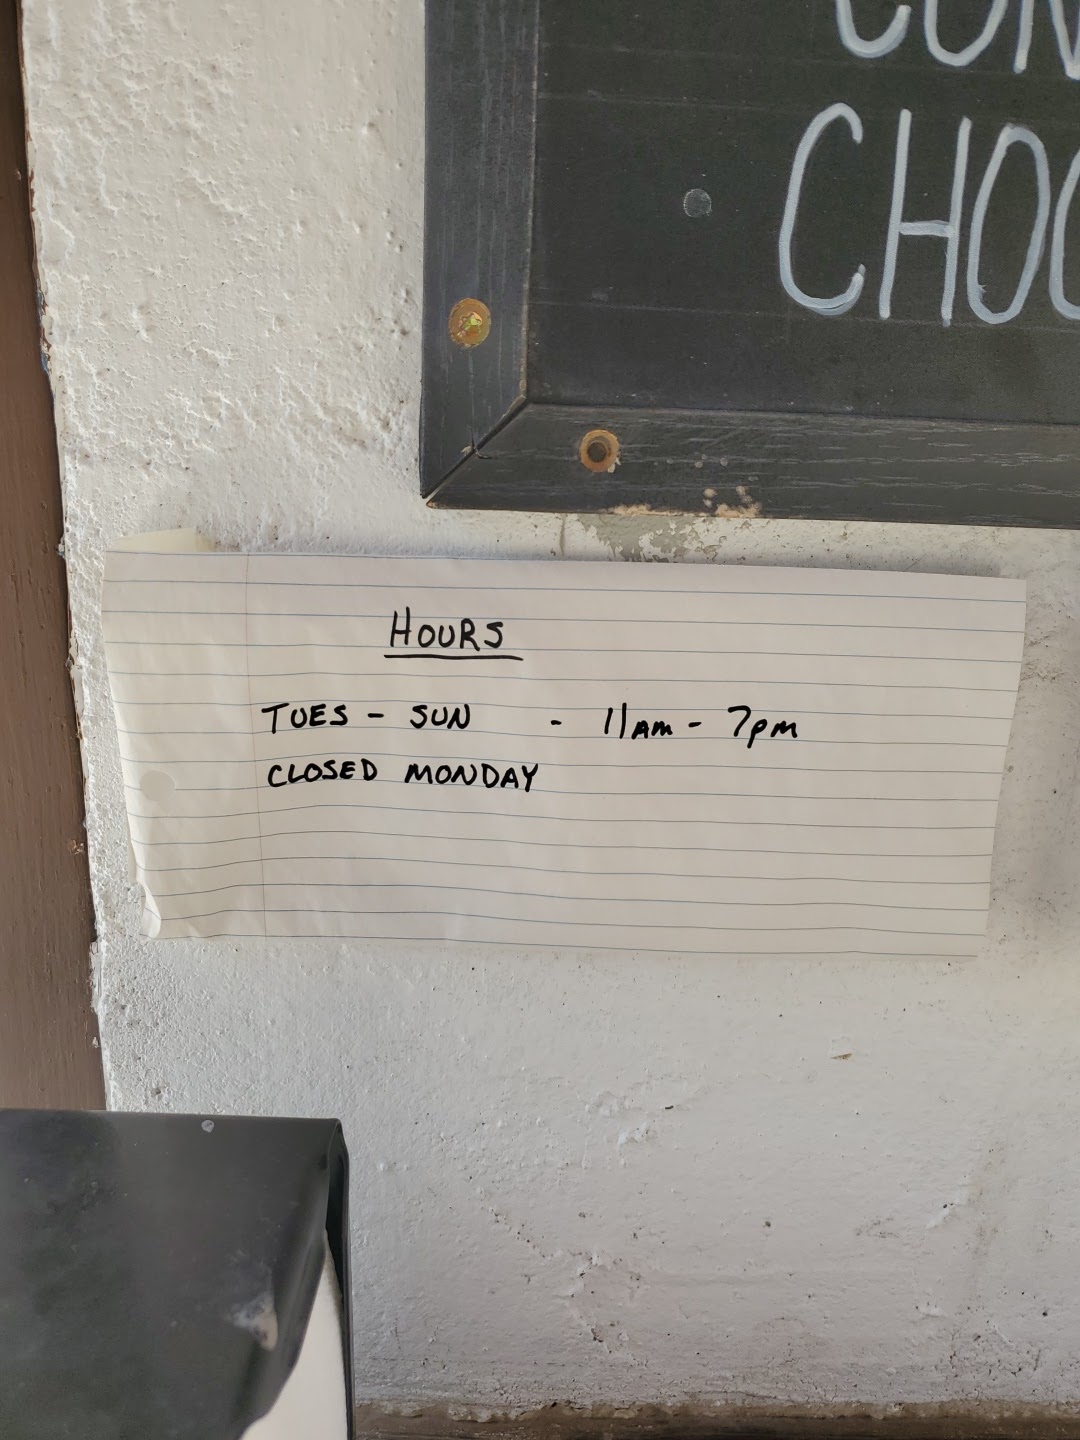 CHOC
HOURS
TUES - SUN - 11AM - 7PM
CLOSED MONDAY